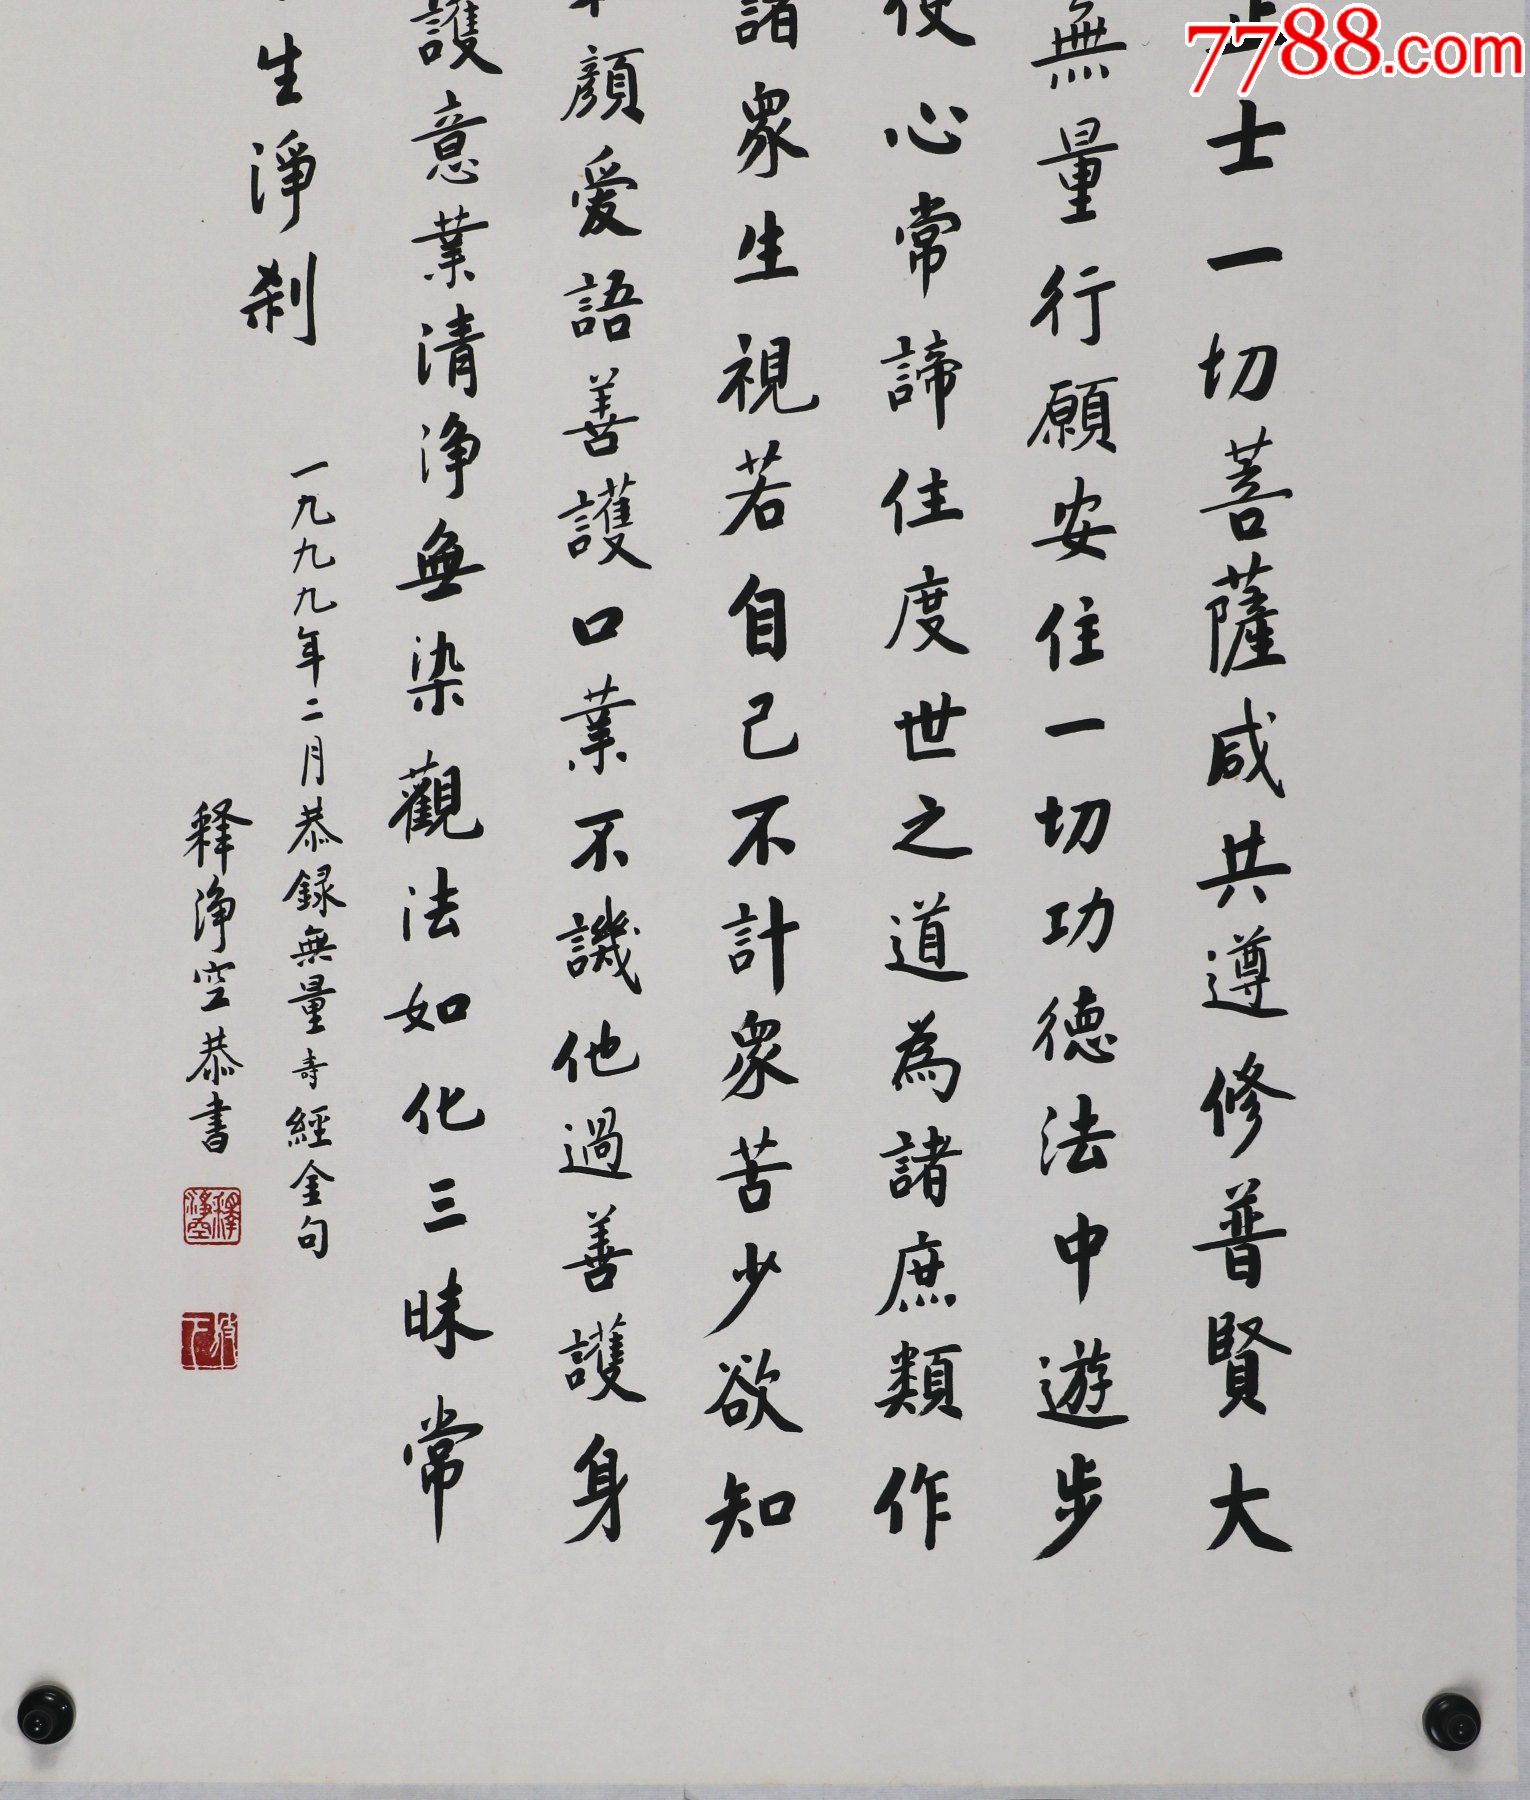 士一切菩薩咸共遵修普賢大
無量行願安住一切功德法中遊步
使心常諦住度世之道為諸庶類作
諸眾生視若自己不計眾苦少欲知
顏愛語善護口業不譏他過善護身
護意業清淨無染觀法如化三昧常
生淨刹
一九九九年二月恭録無量寿經金句
释淨空恭書
釋淨空
7788.com